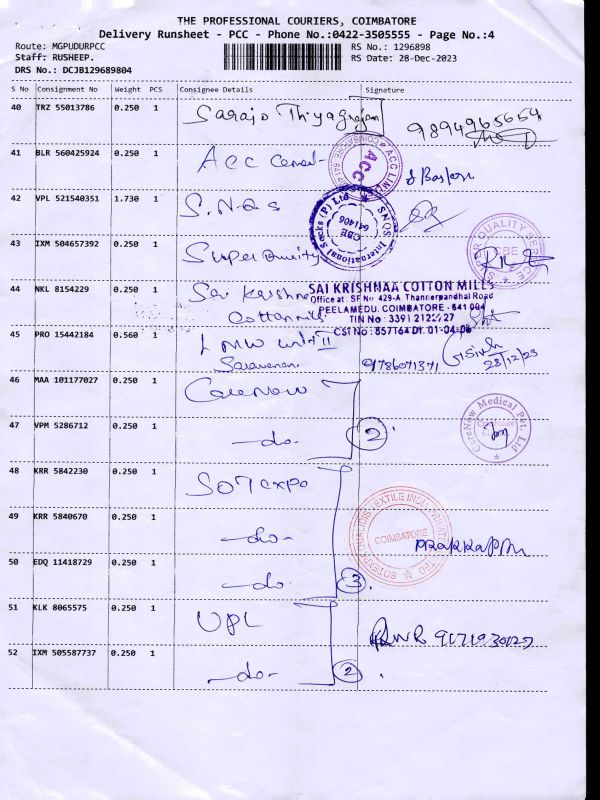 THE PROFESSIONAL COURIERS, COIMBATORE
Delivery Runsheet - PCC - Phone No.:0422-3505555 - Page No.:4
Route: MGPUDURPCC
RS No.: 1296898
Staff: RUSHEEP.
RS Date: 28-Dec-2023
DRS No.: DCJB129689804
S No Consignment No Weight PCS Consignee Details Signature
40 TRZ 55013786 0.250 1 Sarajo Thiyagrajan 9894965654
41 BLR 560425924 0.250 1 ACC Cement
ACC LIMITED
ACC
42 VPL 521540351 1.730 1 S.N.Q.S
SNQS International Socks (P) Ltd
CBE
641406
43 IXM 504657392 0.250 1 Super Quality
SUPER QUALITY SERVICES
CBE
44 NKL 8154229 0.250 1 Sai Krishna
Cotton mill
SAI KRISHNAA COTTON MILLS
Office at : SF No 429-A Thannerpandhal Road
PEELAMEDU, COIMBATORE - 641 004
TIN No : 3391 2122 27
CST No : 857164 Dt. 01-04-06
45 PRO 15442184 0.560 1 LMW unit II
Saravanan 9786071371
28/12/23
46 MAA 101177027 0.250 1 CareNow
47 VPM 5286712 0.250 1 -do- 2
CareNow Medical Pvt. Ltd
48 KRR 5842230 0.250 1 SOTexpo
49 KRR 5840670 0.250 1 -do-
COIMBATORE
50 EDQ 11418729 0.250 1 -do- 3
51 KLK 8065575 0.250 1 UPL
52 IXM 505587737 0.250 1 -do- 2